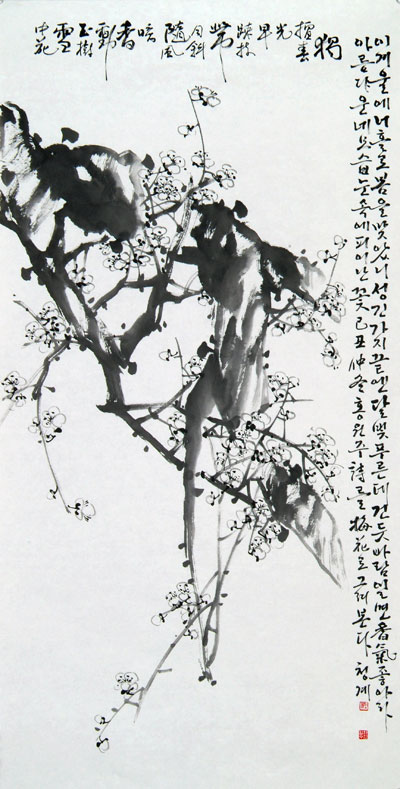 獨
擅春
光
早
疎枝
帶
月斜
隨風
暗
香
動
玉樹
雪
中花
이 겨울에 너 홀로 봄을 맞았니 성긴 가지 끝엔 달빛 푸른데 건듯 바람 일면 香氣 좋아라
아름다운 네 모습 눈 속에 피어난 꽃 己丑 仲冬 홍원주 詩 梅花로 그려 본다 청계